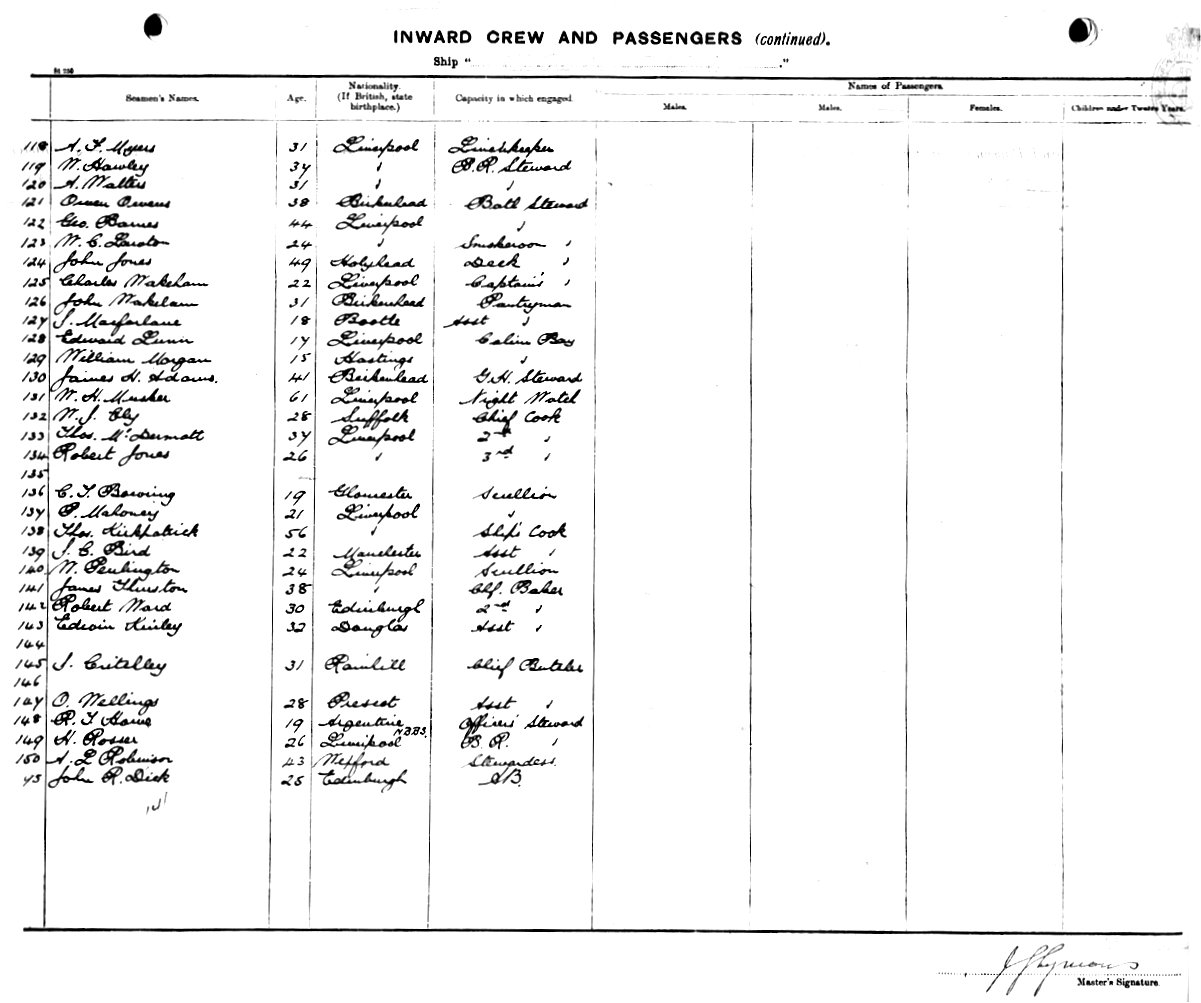 INWARD CREW AND PASSENGERS (continued).
Ship " "
Seamen's Names. Age. Nationality. (If British, state birthplace.) Capacity in which engaged Names of Passengers
Males. Males. Females. Children under Twelve Years.
118 A. F. Myers 31 Liverpool Linenkeeper
119 W. Hawley 34 " B. R. Steward
120 A. Walters 31 " "
121 Owen Owens 38 Birkenhead Bath Steward
122 Geo. Barnes 44 Liverpool "
123 W. C. 24 " Smokeroom "
124 John Jones 49 Holyhead Deck "
125 Charles Wakeham 22 Liverpool Captain's "
126 John Wakeham 31 Birkenhead Pantryman
127 J. Macfarlane 18 Bootle Asst "
128 Edward Lunn 17 Liverpool Cabin Boy
129 William Morgan 15 Hastings "
130 James H. Adams. 41 Birkenhead G. H. Steward
131 W. H. Musker 61 Liverpool Night Watch
132 W. J. Ely 28 Suffolk Chief Cook
133 Thos. McDermott 37 Liverpool 2nd "
134 Robert Jones 26 " 3rd "
135
136 C. T. Bowring 19 Gloucester Scullion
137 P. Mahoney 21 Liverpool "
138 Thos. Kirkpatrick 56 " Ship's Cook
139 J. C. Bird 22 Manchester Asst "
140 W. Penlington 24 Liverpool Scullion
141 James Thurston 38 " Chf. Baker
142 Robert Ward 30 Edinburgh 2nd "
143 Edwin Kinley 32 Douglas Asst "
144
145 J. Critchley 31 Rainhill Chief Butcher
146
147 O. Wellings 28 Prescot Asst "
148 R. T. Howe 19 Argentine N.B.BS. Officers' Steward
149 H. Rosser 26 Liverpool B. R. "
150 A. L. Robinson 43 Wexford Stewardess.
45 John R. Dick 25 Edinburgh AB.
Master's Signature.